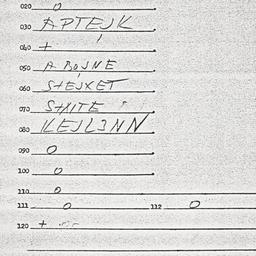 020 0
030 APTEJK
060 +
050 A BOJNE
060 STEJXET
070 SHXITE
080 KEJLINN
090 0
100 0
110 0
111 0 112 0
120 +